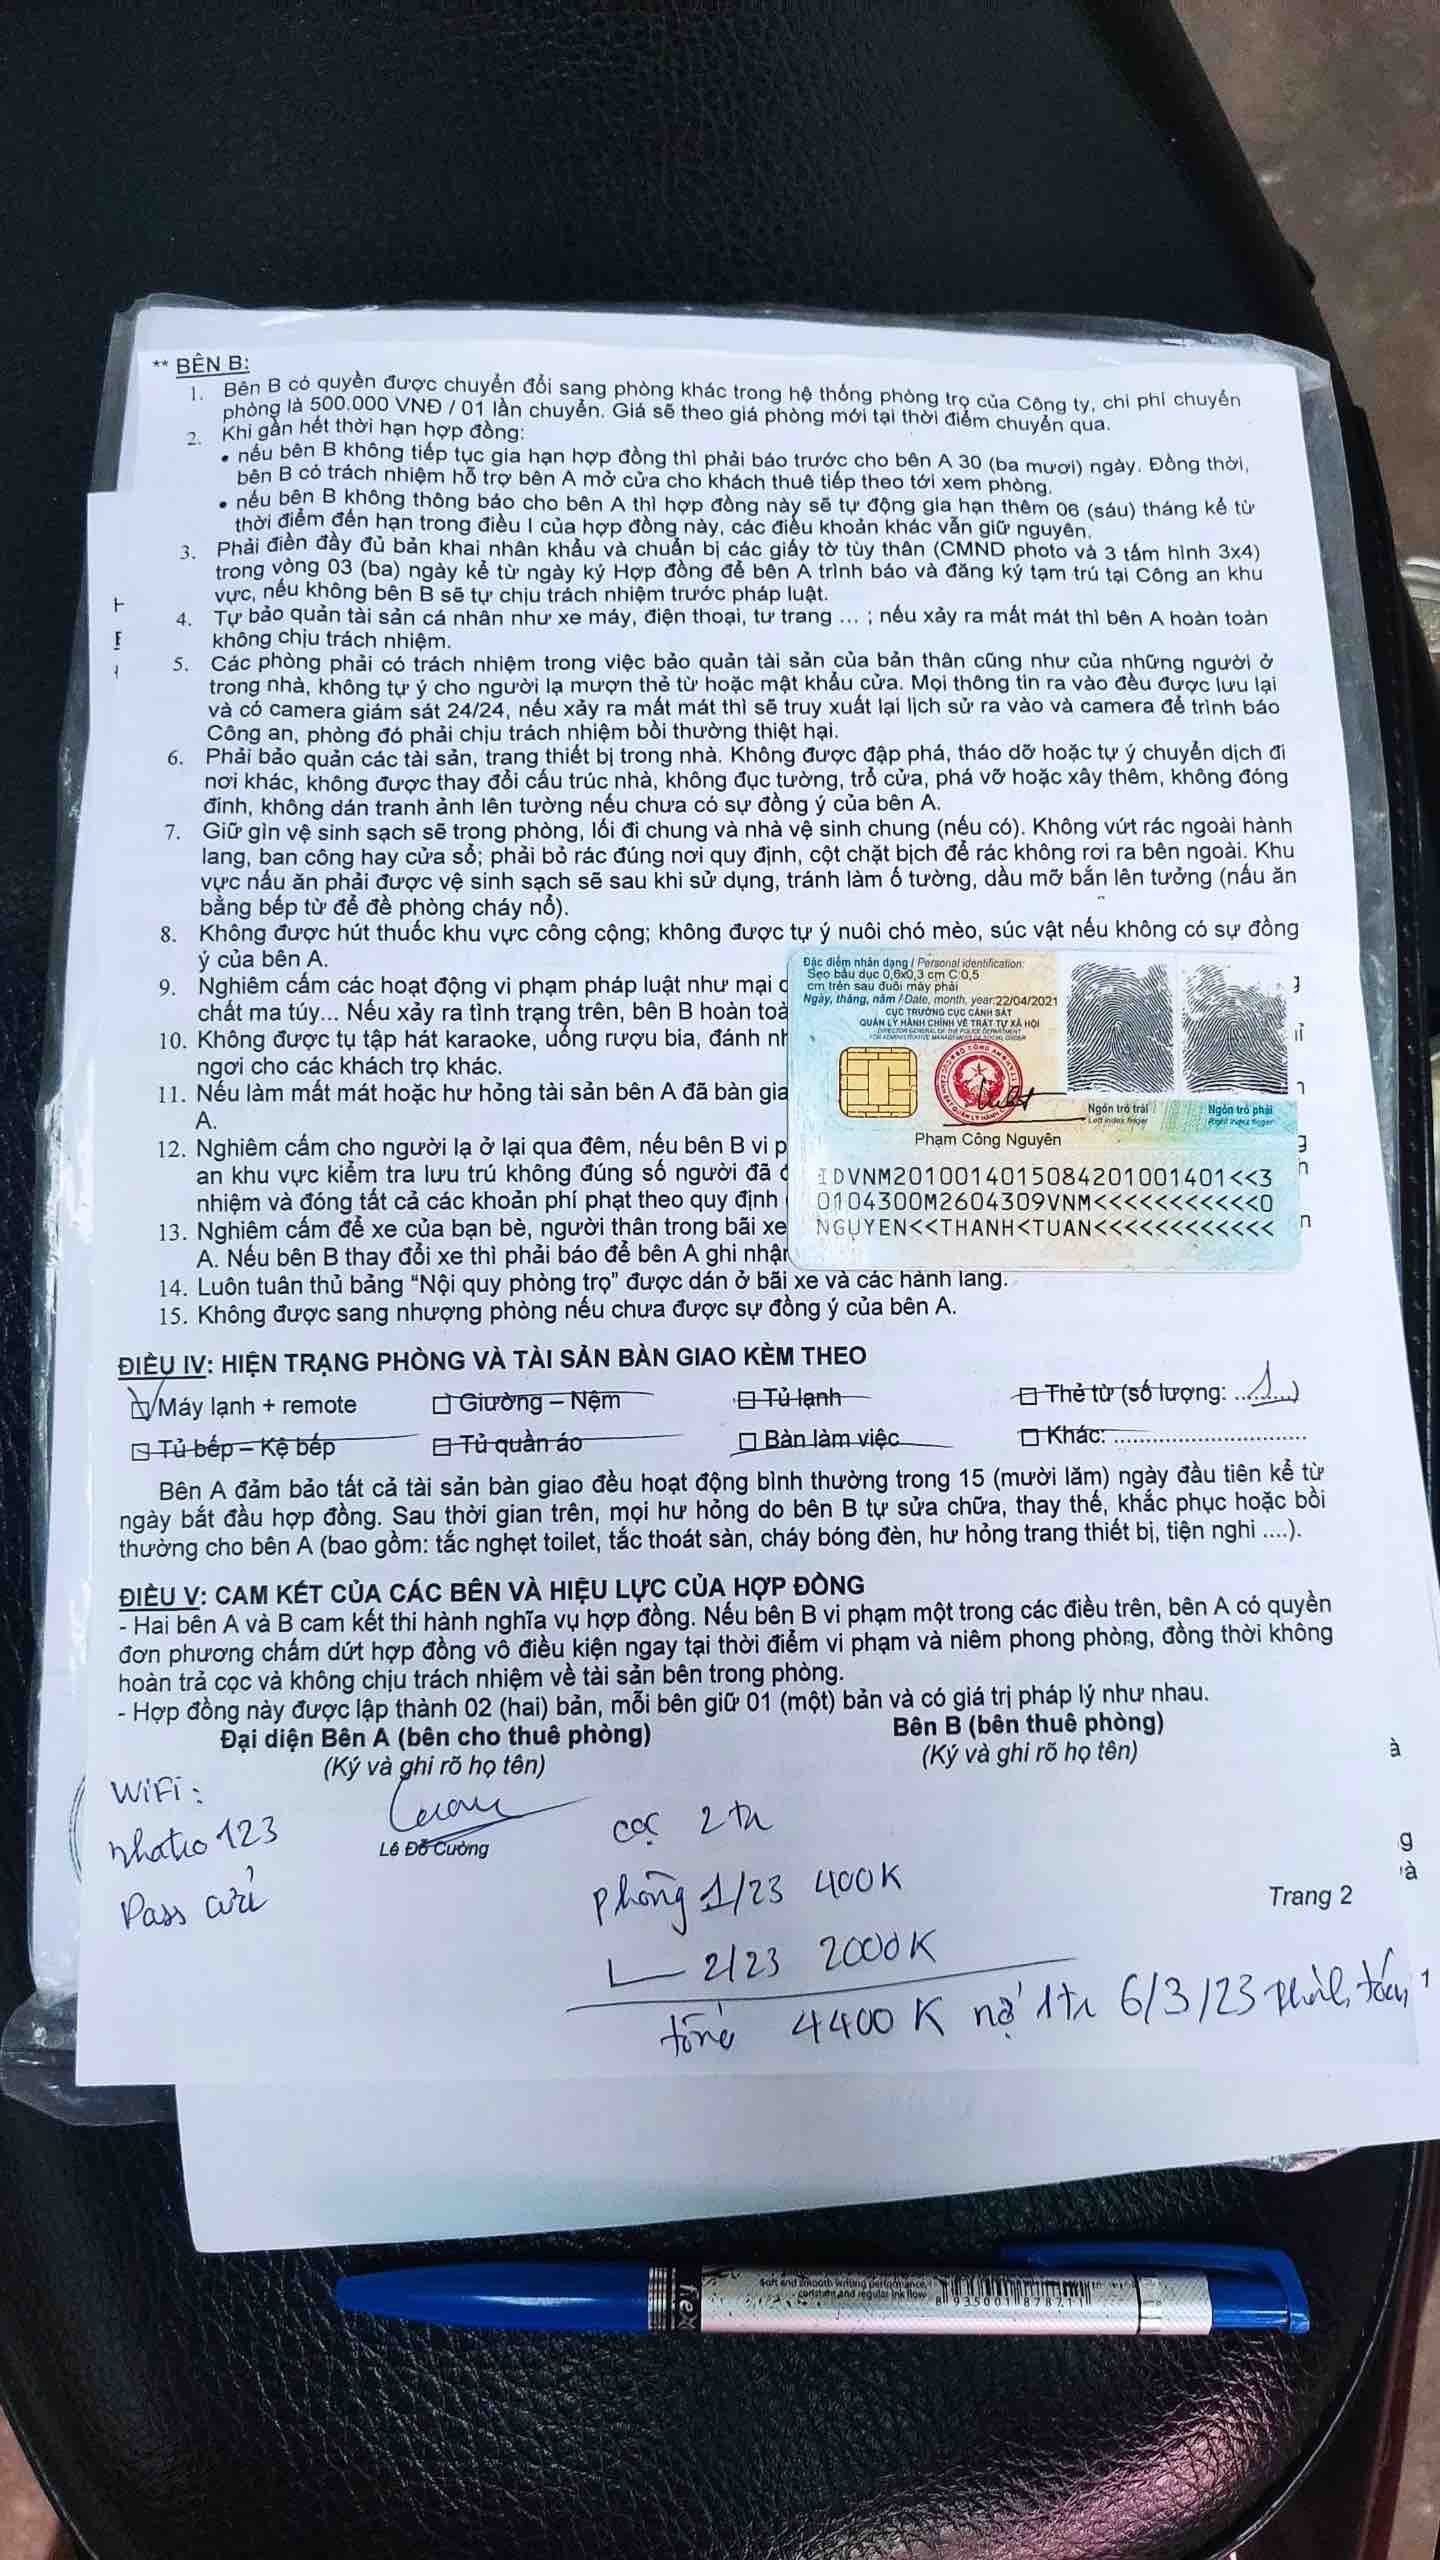 ** BÊN B:
1. Bên B có quyền được chuyển đổi sang phòng khác trong hệ thống phòng trọ của Công ty, chi phí chuyển
phòng là 500.000 VNĐ / 01 lần chuyển. Giá sẽ theo giá phòng mới tại thời điểm chuyển qua.
2. Khi gần hết thời hạn hợp đồng:
• nếu bên B không tiếp tục gia hạn hợp đồng thì phải báo trước cho bên A 30 (ba mươi) ngày. Đồng thời,
bên B có trách nhiệm hỗ trợ bên A mở cửa cho khách thuê tiếp theo tới xem phòng.
• nếu bên B không thông báo cho bên A thì hợp đồng này sẽ tự động gia hạn thêm 06 (sáu) tháng kể từ
thời điểm đến hạn trong điều I của hợp đồng này, các điều khoản khác vẫn giữ nguyên.
3. Phải điền đầy đủ bản khai nhân khẩu và chuẩn bị các giấy tờ tùy thân (CMND photo và 3 tấm hình 3x4)
trong vòng 03 (ba) ngày kể từ ngày ký Hợp đồng để bên A trình báo và đăng ký tạm trú tại Công an khu
vực, nếu không bên B sẽ tự chịu trách nhiệm trước pháp luật.
4. Tự bảo quản tài sản cá nhân như xe máy, điện thoại, tư trang ... ; nếu xảy ra mất mát thì bên A hoàn toàn
không chịu trách nhiệm.
5. Các phòng phải có trách nhiệm trong việc bảo quản tài sản của bản thân cũng như của những người ở
trong nhà, không tự ý cho người lạ mượn thẻ từ hoặc mật khẩu cửa. Mọi thông tin ra vào đều được lưu lại
và có camera giám sát 24/24, nếu xảy ra mất mát thì sẽ truy xuất lại lịch sử ra vào và camera để trình báo
Công an, phòng đó phải chịu trách nhiệm bồi thường thiệt hại.
6. Phải bảo quản các tài sản, trang thiết bị trong nhà. Không được đập phá, tháo dỡ hoặc tự ý chuyển dịch đi
nơi khác, không được thay đổi cấu trúc nhà, không đục tường, trổ cửa, phá vỡ hoặc xây thêm, không đóng
đinh, không dán tranh ảnh lên tường nếu chưa có sự đồng ý của bên A.
7. Giữ gìn vệ sinh sạch sẽ trong phòng, lối đi chung và nhà vệ sinh chung (nếu có). Không vứt rác ngoài hành
lang, ban công hay cửa sổ; phải bỏ rác đúng nơi quy định, cột chặt bịch để rác không rơi ra bên ngoài. Khu
vực nấu ăn phải được vệ sinh sạch sẽ sau khi sử dụng, tránh làm ố tường, dầu mỡ bắn lên tưởng (nấu ăn
bằng bếp từ để đề phòng cháy nổ).
8. Không được hút thuốc khu vực công cộng; không được tự ý nuôi chó mèo, súc vật nếu không có sự đồng
ý của bên A.
9. Nghiêm cấm các hoạt động vi phạm pháp luật như mại d
chất ma túy... Nếu xảy ra tình trạng trên, bên B hoàn toà
10. Không được tụ tập hát karaoke, uống rượu bia, đánh nh
ngơi cho các khách trọ khác.
11. Nếu làm mất mát hoặc hư hỏng tài sản bên A đã bàn gia
A.
12. Nghiêm cấm cho người lạ ở lại qua đêm, nếu bên B vi p
an khu vực kiểm tra lưu trú không đúng số người đã
nhiệm và đóng tất cả các khoản phí phạt theo quy định
13. Nghiêm cấm để xe của bạn bè, người thân trong bãi xe
A. Nếu bên B thay đổi xe thì phải báo để bên A ghi nhận
14. Luôn tuân thủ bảng “Nội quy phòng trọ” được dán ở bãi xe và các hành lang.
15. Không được sang nhượng phòng nếu chưa được sự đồng ý của bên A.
Đặc điểm nhân dạng / Personal identification:
Sẹo bầu dục 0,6x0,3 cm C:0,5
cm trên sau đuôi mày phải
Ngày, tháng, năm / Date, month, year:22/04/2021
CỤC TRƯỞNG CỤC CẢNH SÁT
QUẢN LÝ HÀNH CHÍNH VỀ TRẬT TỰ XÃ HỘI
DIRECTOR GENERAL OF THE POLICE DEPARTMENT
FOR ADMINISTRATIVE MANAGEMENT OF SOCIAL ORDER
Ngón trỏ trái
Left index finger
Ngón trỏ phải
Right index finger
Phạm Công Nguyên
IDVNM2010014015084201001401<<3
0104300M2604309VNM<<<<<<<<<<<0
NGUYEN<<THANH<TUAN<<<<<<<<<<<<
ĐIỀU IV: HIỆN TRẠNG PHÒNG VÀ TÀI SẢN BÀN GIAO KÈM THEO
Máy lạnh + remote Giường – Nệm Tủ lạnh Thẻ từ (số lượng: ...1...)
Tủ bếp – Kệ bếp Tủ quần áo Bàn làm việc Khác: ..............................
Bên A đảm bảo tất cả tài sản bàn giao đều hoạt động bình thường trong 15 (mười lăm) ngày đầu tiên kể từ
ngày bắt đầu hợp đồng. Sau thời gian trên, mọi hư hỏng do bên B tự sửa chữa, thay thế, khắc phục hoặc bồi
thường cho bên A (bao gồm: tắc nghẹt toilet, tắc thoát sàn, cháy bóng đèn, hư hỏng trang thiết bị, tiện nghi ....).
ĐIỀU V: CAM KẾT CỦA CÁC BÊN VÀ HIỆU LỰC CỦA HỢP ĐỒNG
- Hai bên A và B cam kết thi hành nghĩa vụ hợp đồng. Nếu bên B vi phạm một trong các điều trên, bên A có quyền
đơn phương chấm dứt hợp đồng vô điều kiện ngay tại thời điểm vi phạm và niêm phong phòng, đồng thời không
hoàn trả cọc và không chịu trách nhiệm về tài sản bên trong phòng.
- Hợp đồng này được lập thành 02 (hai) bản, mỗi bên giữ 01 (một) bản và có giá trị pháp lý như nhau.
Đại diện Bên A (bên cho thuê phòng) Bên B (bên thuê phòng)
(Ký và ghi rõ họ tên) (Ký và ghi rõ họ tên)
WiFi:
nhatro123
Pass cửa
Lê Đỗ Cường
cọc 2tr
phòng 1/23 400K
2/23 2000K
tổng 4400K nợ 1tr 6/3/23
Trang 2
flex
Soft and smooth writing performance,
constant and regular ink flow
8 935001 878711